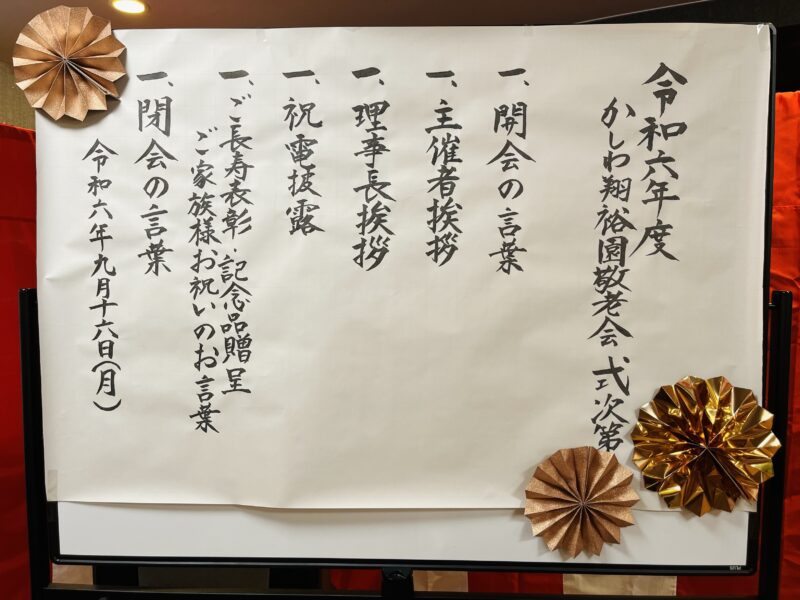 令和六年度
かしわ翔裕園敬老会 式次第
一、開会の言葉
一、主催者挨拶
一、理事長挨拶
一、祝電披露
一、ご長寿表彰・記念品贈呈
ご家族様お祝いのお言葉
一、閉会の言葉
令和六年九月十六日(月)